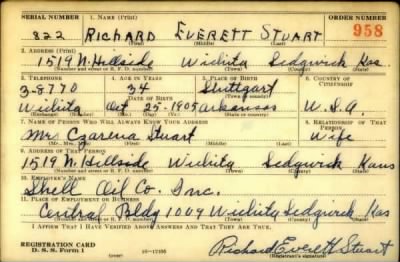 SERIAL NUMBER 1. NAME (Print) ORDER NUMBER
822 RICHARD EVERETT STUART 958
(First) (Middle) (Last)
2. ADDRESS (Print)
1519 N. Hillside Wichita Sedgwick Kas
(Number and street or R. F. D. number) (Town) (County) (State)
3. TELEPHONE 4. AGE IN YEARS 5. PLACE OF BIRTH 6. COUNTRY OF CITIZENSHIP
3-8770 34 Stuttgart
DATE OF BIRTH (Town or county)
Wichita Oct 25-1905 Arkansas U.S.A.
(Exchange) (Number) (Mo.) (Day) (Yr.) (State or country)
7. NAME OF PERSON WHO WILL ALWAYS KNOW YOUR ADDRESS 8. RELATIONSHIP OF THAT PERSON
Mrs Czarena Stuart Wife
(Mr., Mrs., Miss) (First) (Middle) (Last)
9. ADDRESS OF THAT PERSON
1519 N. Hillside Wichita Sedgwick Kans
(Number and street or R. F. D. number) (Town) (County) (State)
10. EMPLOYER'S NAME
Shell Oil Co. Inc.
11. PLACE OF EMPLOYMENT OR BUSINESS
Central Bldg 1009 Wichita Sedgwick Kas
(Number and street or R. F. D. number) (Town) (County) (State)
I AFFIRM THAT I HAVE VERIFIED ABOVE ANSWERS AND THAT THEY ARE TRUE.
REGISTRATION CARD
D. S. S. Form 1 (over) 16-17105 Richard Everett Stuart
(Registrant's signature)